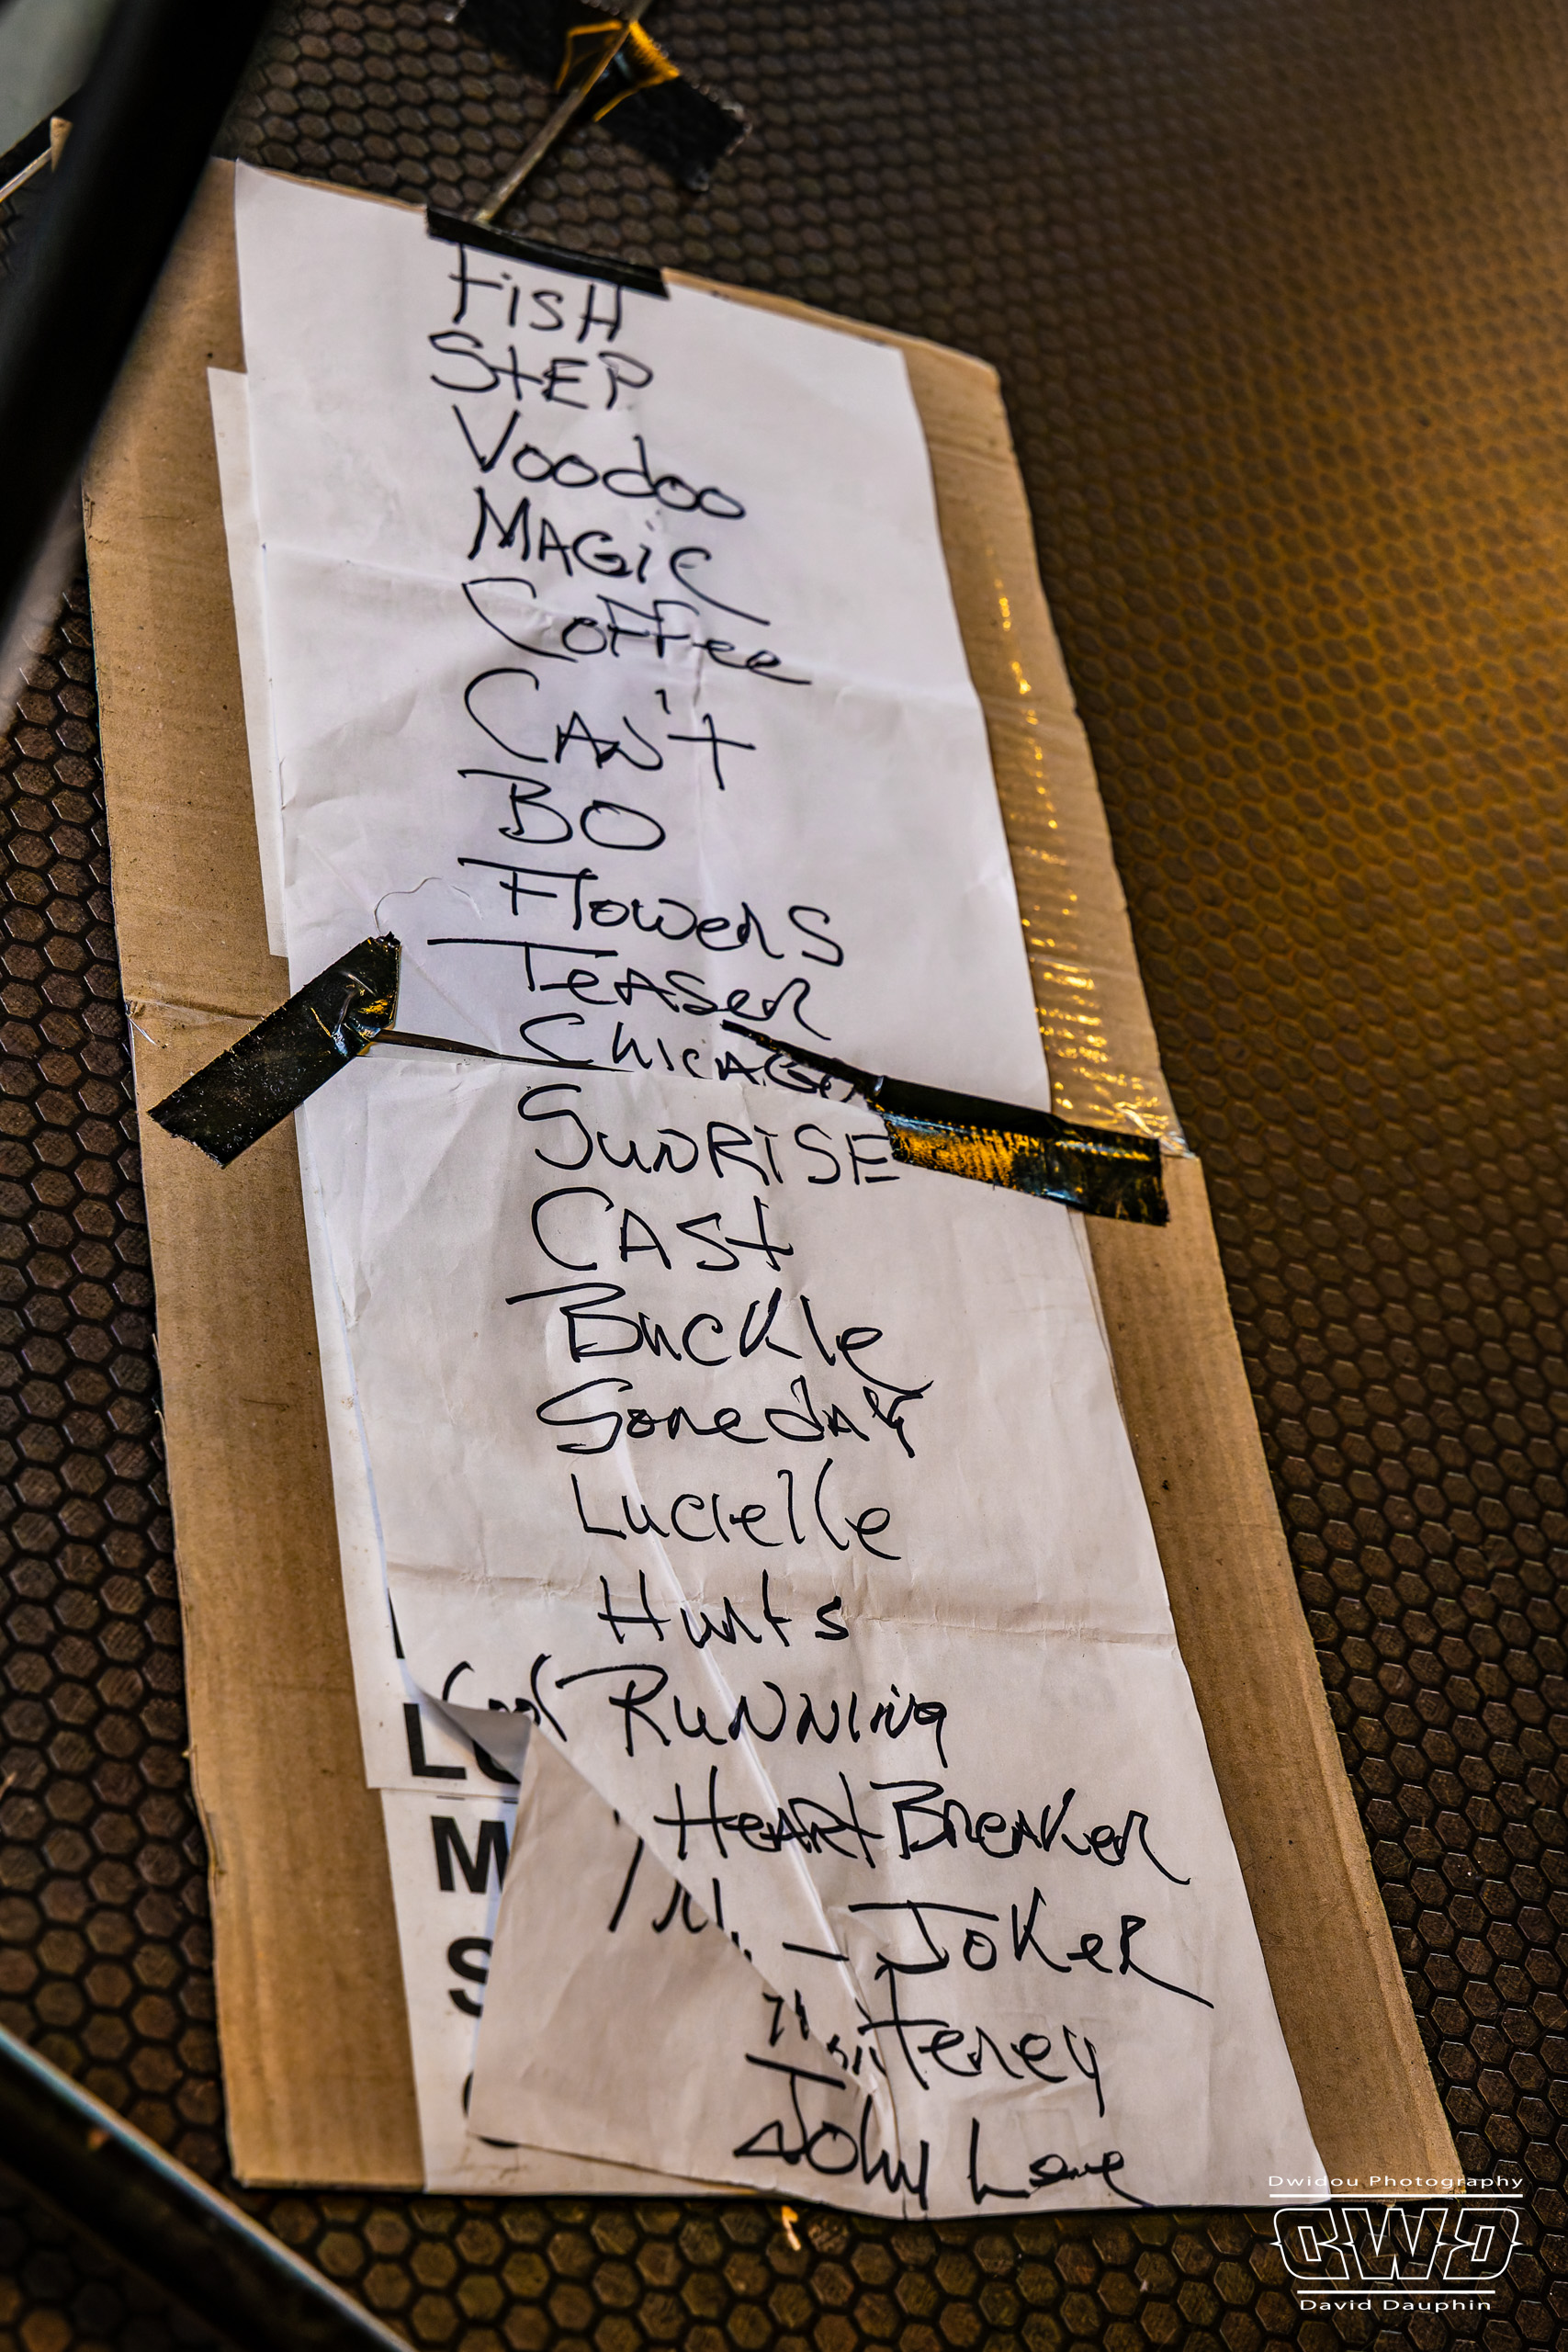 FisH
StEP
Voodoo
MAGiC
CoFFee
CAN'T
BO
Flowers
TeASer
ChicAGo
SuNRiSE
CASt
Buckle
Someday
Lucielle
Hurts
Cool RuNNing
HeARt BreaKer
- JoKeR
L
M
S
John
Dwidou Photography
DWD
David Dauphin